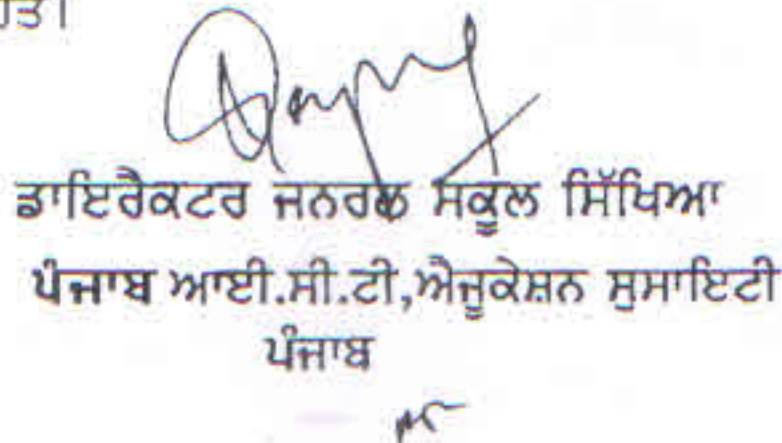 ਡਾਇਰੈਕਟਰ ਜਨਰਲ ਸਕੂਲ ਸਿੱਖਿਆ
ਪੰਜਾਬ ਆਈ.ਸੀ.ਟੀ,ਐਜੂਕੇਸ਼ਨ ਸੁਸਾਇਟੀ
ਪੰਜਾਬ